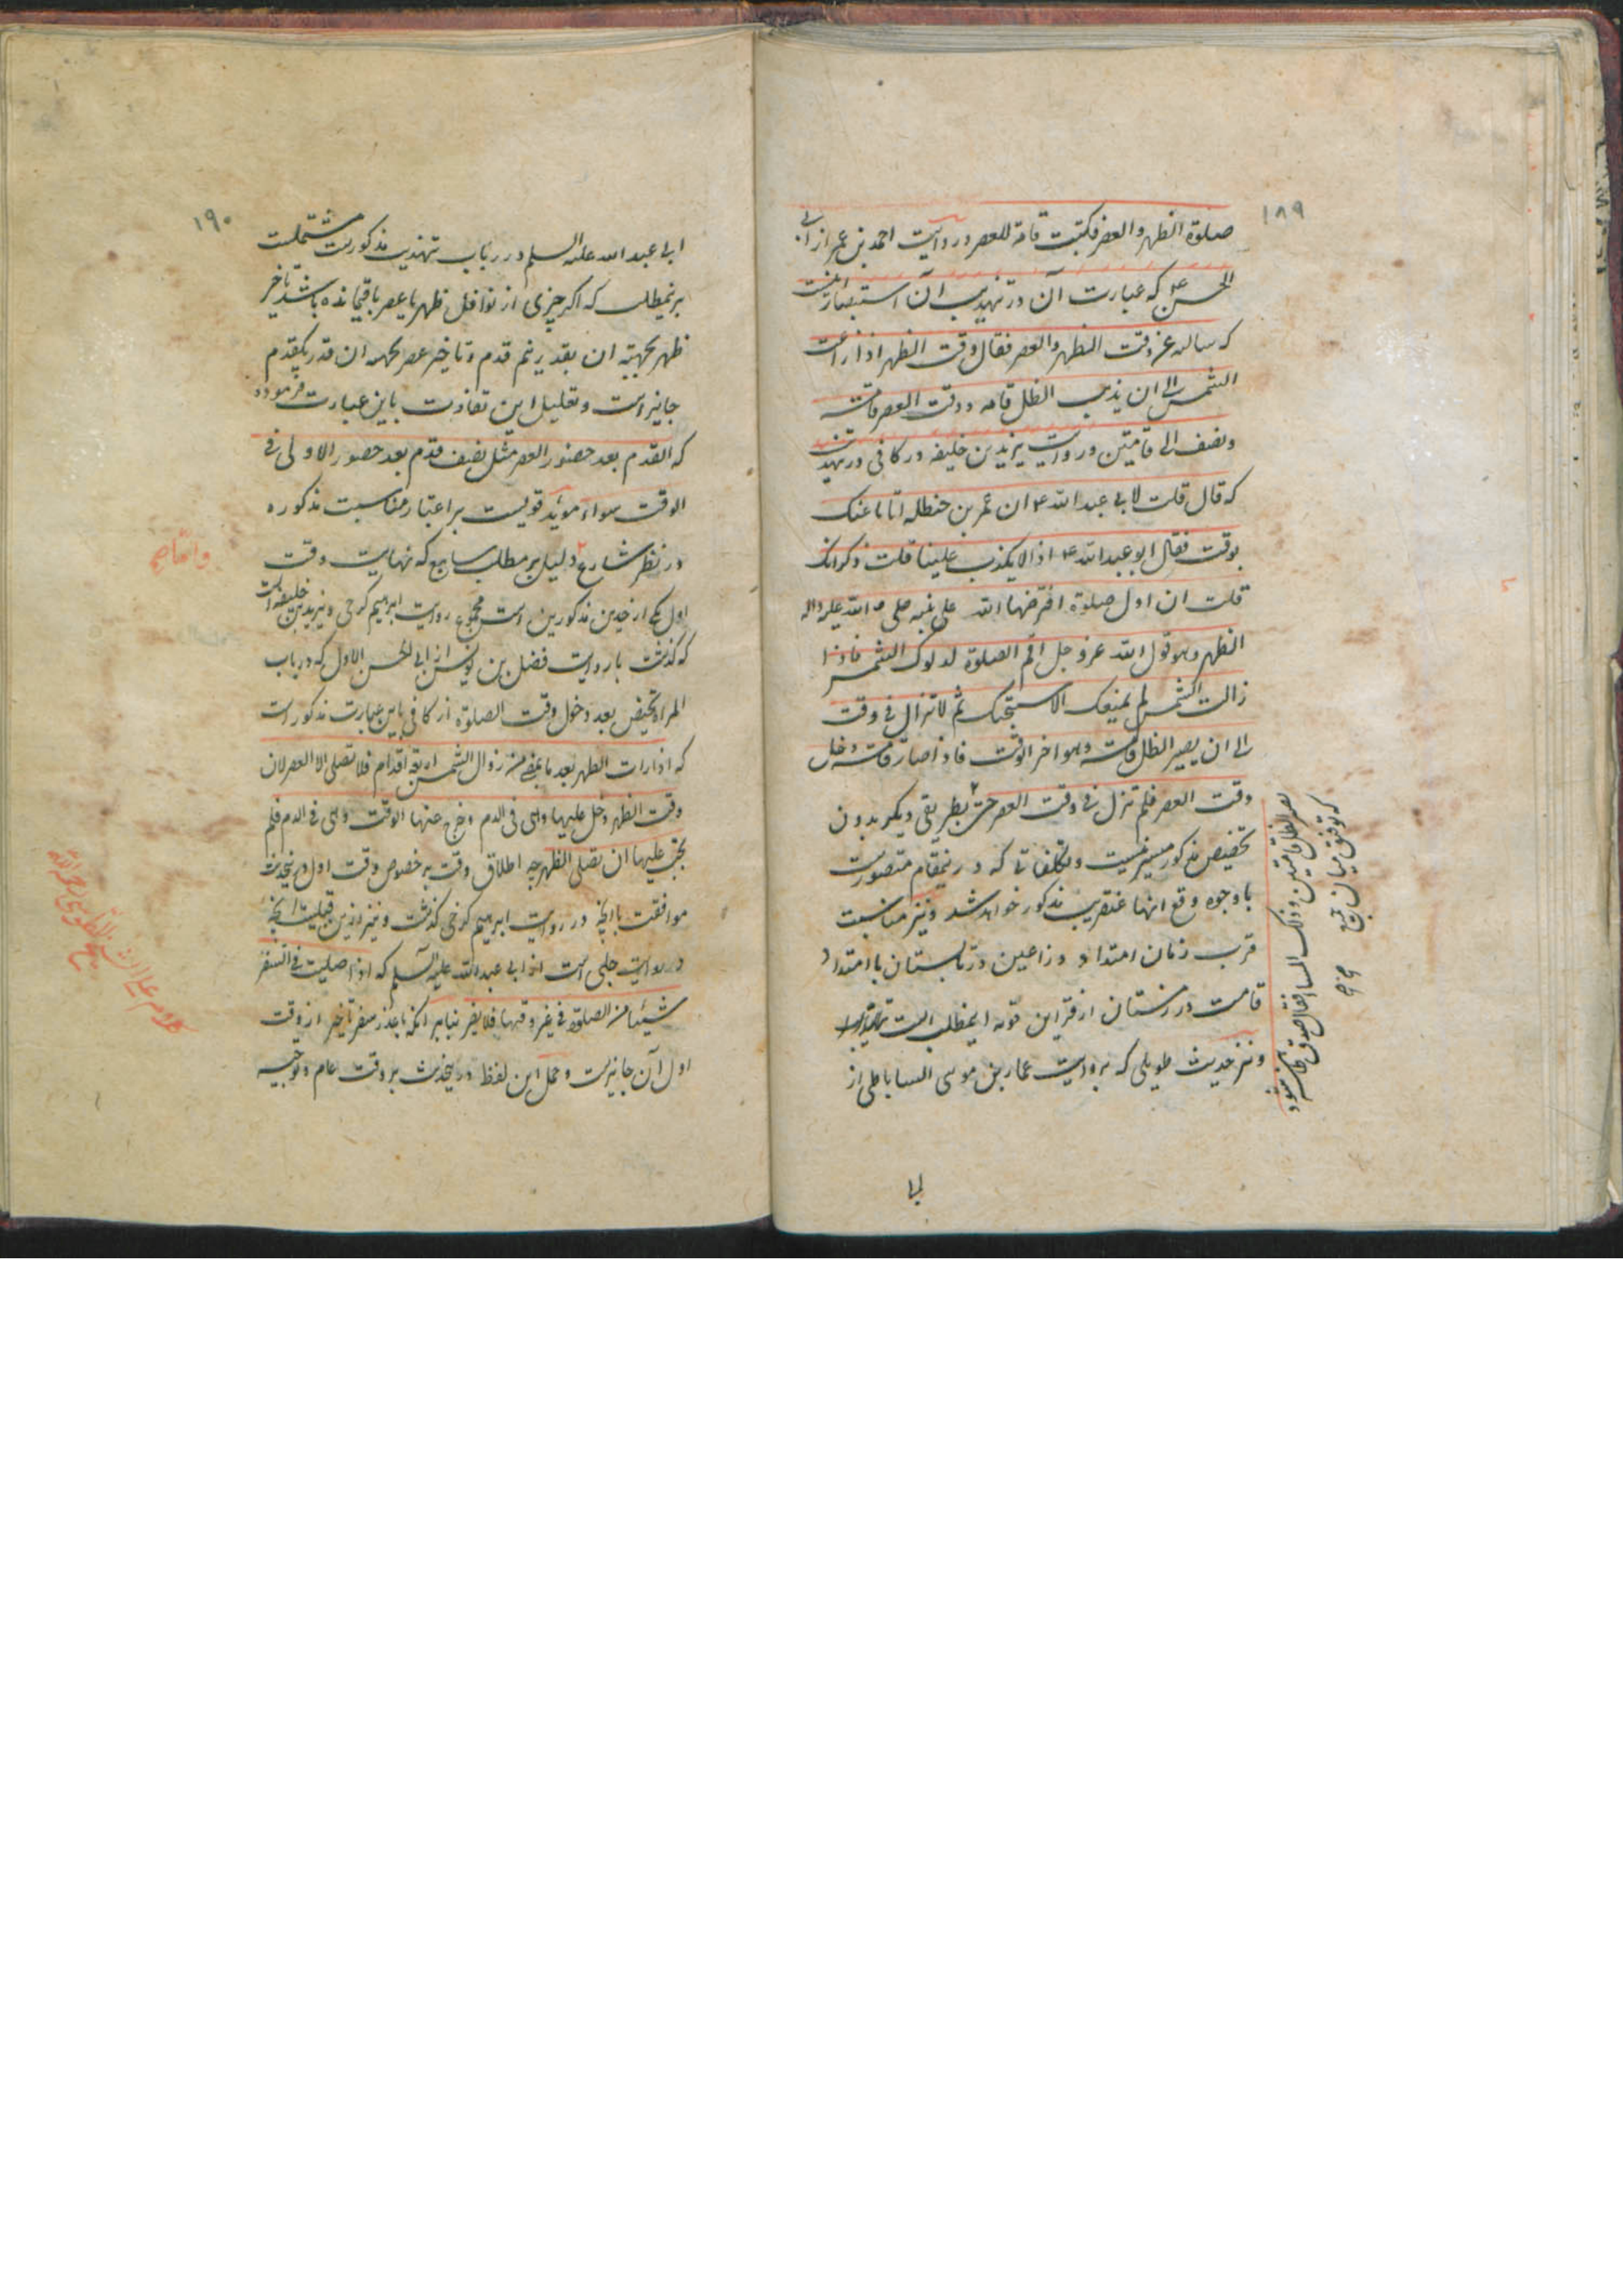 ۱۸۹
صلوة الظهر والعصر فکتبت قامة للعصر ودر روایت احمد بن عمر از ابی
الحسن ع که عبارت آن در تهذیب آن استبصار اینست
که سالته عن وقت الظهر والعصر فقال وقت الظهر اذا زاغت
الشمس الی ان یذهب الظل قامه ووقت العصر قامة
ونصف الی قامتین ودر روایت یزیدبن خلیفه در کافی ودر تهذیب
که قال قلت لابی عبد الله ع ان عمر بن حنظله اتانا عنک
بوقت فقال ابو عبد الله ع اذا لا یکذب علینا قلت ذکر انک
قلت ان اول صلوة افترضها الله علی نبیه صلی الله علیه واله
الظهر وهو قول الله عز وجل اقم الصلوة لدلوک الشمس فاذا
زالت الشمس لم یمنعک الا سبحتک ثم لا تزال فی وقت
الی ان یصیر الظل قامة وهو اخر الوقت فاذا صار قامة دخل
وقت العصر فلم تزل فی وقت العصر حتی بطریقی دیگر بدون
تخصیص مذکور میسر نیست وتکلفاتی که در ینمقام متصورست
با وجوه وقع انها عنقریب مذکور خواهد شد ونیز مناسبت
قرب زمان امتداد دراعین در تابستان با امتداد
قامت در زمستان از قراین قویه اینمطلب است
ونیز حدیث طویلی که بروایت عمار بن موسی الساباطی از
یصیر الظل قامتین وذلک المساء فقال صدق
که توفیق میان
ابی عبد الله علیه السلم در باب تهذیب مذکورست مشتملست
۱۹۰
بر ینمطلب که اکر چیزی از نوافل ظهر یا عصر باقیمانده باشد تاخیر
ظهر بجهته ان بقدر نیم قدم وتاخیر عصر بجهه ان قدر یکقدم
جایز است وتعلیل این تفاوت باین عبارت فرموده
که القدم بعد حضور العصر مثل نصف قدم بعد حضور الاولی فی
الوقت سواء موئد قویست بر اعتبار مناسبت مذکوره
در نظر شارع دلیل بر مطلب سابع که نهایت وقت
اول یکی از حدین مذکورین است مجموع روایت ابرهیم کرخی ویزیدبن خلیفه است
که کذشت با روایت فضل بن یونس از ابی الحسن الاول که در باب
المراة تحیض بعد دخول وقت الصلوة از کافی باین عبارت مذکور است
که اذا رات الطهر بعد ما یمضی من زوال الشمس اربعة اقدام فلا تصلی الا العصر لان
وقت الظهر دخل علیها وهی فی الدم وخرج عنها الوقت وهی فی الدم فلم
یجب علیها ان تصلی الظهر چه اطلاق وقت بر خصوص وقت اول در ینحدیث
موافقت با انچه در روایت ابرهیم کرخی کذشت ونیز ازین قبیلست انچه
در روایت حلبی است از ابی عبد الله علیه السلم که اذا صلیت فی السفر
شیئا من الصلوة فی غیر وقتها فلا یضر بنابر انکه با عذر سفر تاخیر از وقت
اول آن جایز ست وحمل این لفظ در ینحدیث بر وقت عام وتوجیه